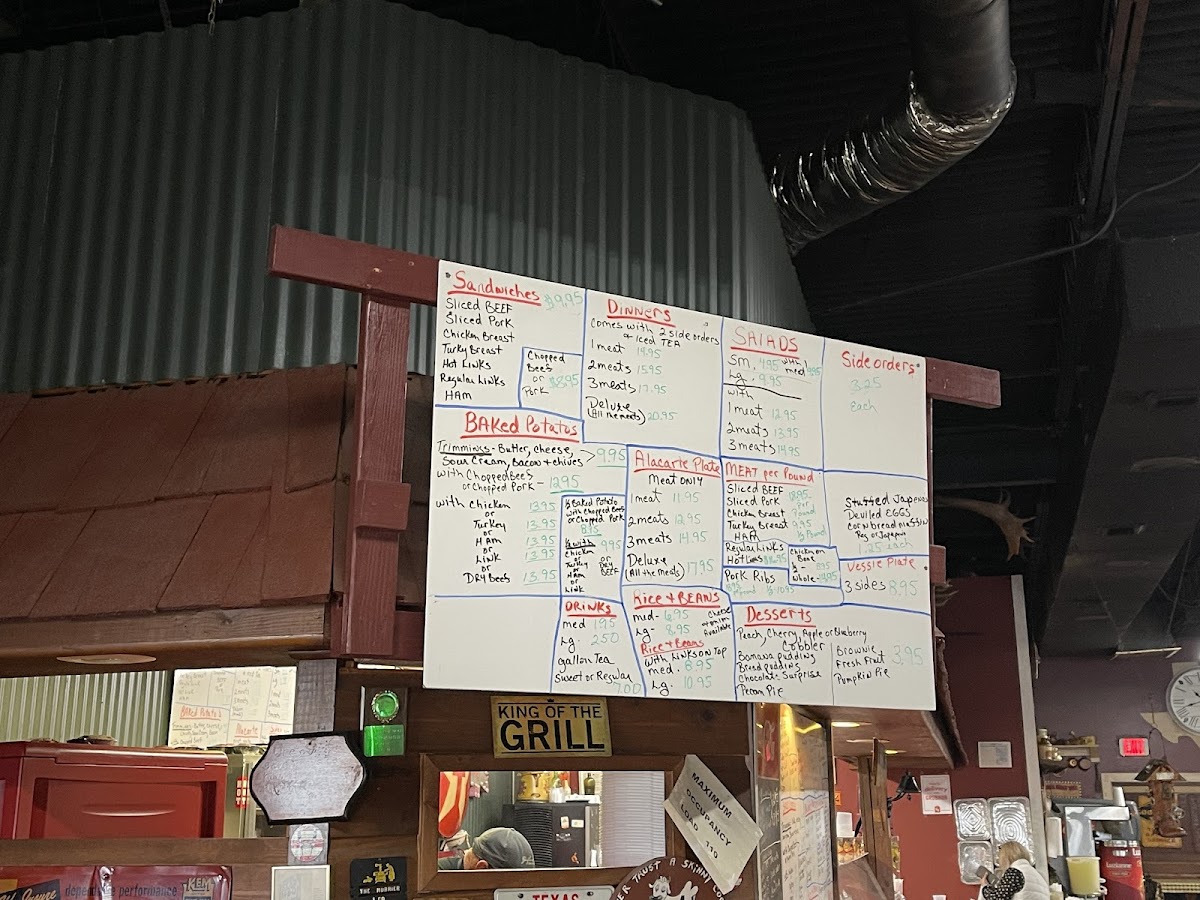 Sandwiches $9.95
Sliced BEEF
Sliced Pork
Chicken Breast
Turky Breast
Hot Links
Regular Links
HAM
Chopped
Beef
or
Pork $8.95
DINNERS
Comes with 2 side orders
& Iced TEA
1 meat 14.95
2 meats 15.95
3 meats 17.95
Deluxe
(All the meats) 20.95
SALADS
Sm. 4.95 with meat 9.95
Lg. 9.95
with
1 meat 12.95
2 meats 13.95
3 meats 14.95
Side orders
3.25
each
BAKED Potatos
Trimmings - Butter, cheese,
Sour Cream, Bacon + chives > 9.95
with Chopped Beef
or Chopped Pork - 12.95
with Chicken 13.95
or
Turkey 13.95
or
HAm 13.95
or
Link 13.95
or
DRY Beef 13.95
½ Baked Potato
with Chopped Beef
or Chopped Pork
½ with 9.95
Chicken
or
Turkey
or
Ham
or
Link
or
DRY
BEEF
Alacarte Plate
Meat ONLY
1 meat 11.95
2 meats 12.95
3 meats 14.95
Deluxe
(All the meats) 17.95
MEAT per Pound
Sliced BEEF
Sliced Pork 18.95
Chicken Breast per Pound
Turkey Breast 9.95
HAM ½ Pound
Regular Links
Hot Links $16.95
Chicken on
Bone
½ - 8.95
whole -
Pork Ribs
Pound ½ 10.95
Stuffed Japenos
Deviled EGGS
Corn bread muffin
Reg or Japeno
1.25 each
Veggie Plate
3 sides 8.95
DRINKS
med 1.95
Lg. 2.50
gallon Tea
sweet or Regular
7.00
Rice + BEANS
med - 6.95 Cheese
Lg - 8.95 + onion
Available
Rice + Beans
with LINKS ON Top
med. 8.95
Lg. 10.95
Desserts
Peach, Cherry, Apple or Blueberry
Cobbler
Banana pudding
Bread pudding
Chocolate Surprise
Pecan Pie
Brownie
Fresh Fruit
Pumpkin Pie
3.95
BAKED Potato's
Alacarte
KING OF THE
GRILL
MAXIMUM
OCCUPANCY
LOAD 170
dependable performance
KEM
TEXAS
TRUST A SKINNY